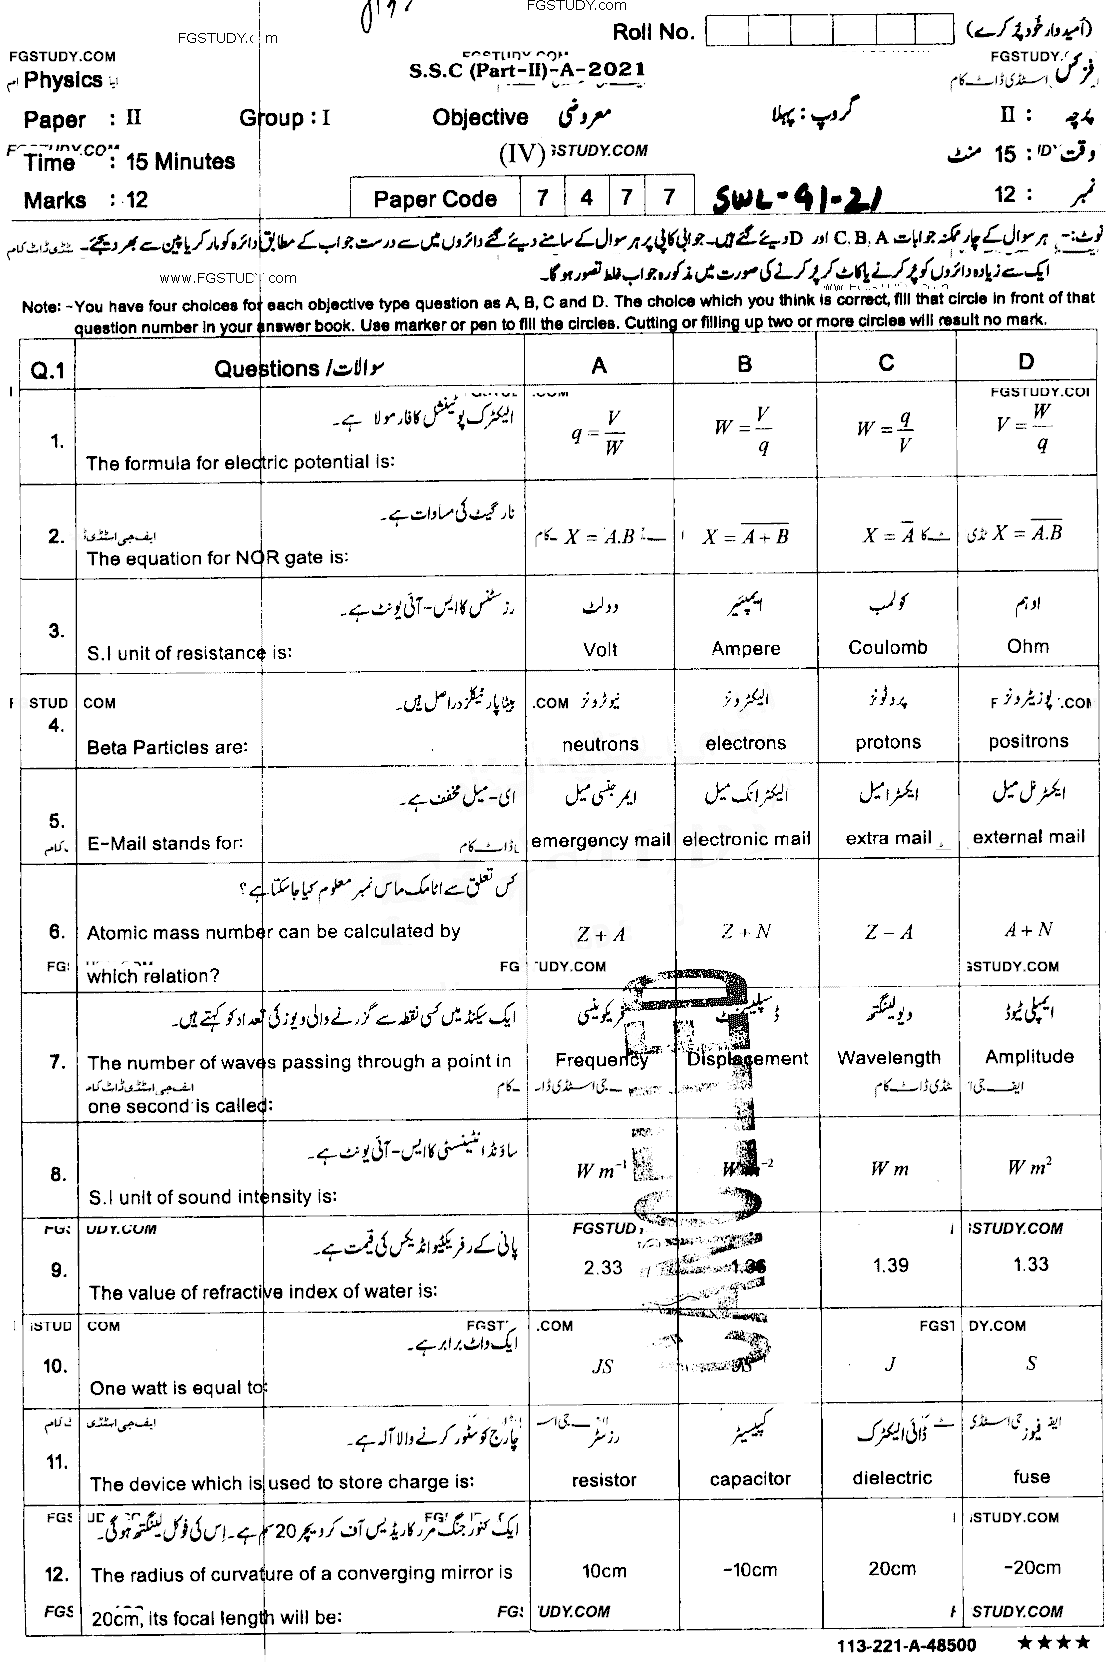 FGSTUDY.com
Roll No. (امیدوار خود پُر کرے)
FGSTUDY.COM S.S.C (Part-II)-A-2021 FGSTUDY.
Physics فزکس
Paper : II Group : I Objective معروضی گروپ : پہلا II : پرچہ
Time : 15 Minutes (IV) وقت : 15 منٹ
Marks : 12 Paper Code 7 4 7 7 SWL-41-21 12 : نمبر
نوٹ:- ہر سوال کے چار ممکنہ جوابات C, B, A اور D دیئے گئے ہیں۔ جوابی کاپی پر ہر سوال کے سامنے دیئے گئے دائروں میں سے درست جواب کے مطابق دائرہ کو مارکر یا پین سے بھر دیجئے۔
ایک سے زیادہ دائروں کو پُر کرنے یا کاٹ کر پُر کرنے کی صورت میں مذکورہ جواب غلط تصور ہوگا۔
www.FGSTUDY.com
Note: -You have four choices for each objective type question as A, B, C and D. The choice which you think is correct, fill that circle in front of that
question number in your answer book. Use marker or pen to fill the circles. Cutting or filling up two or more circles will result no mark.
Q.1 Questions / سوالات A B C D
الیکٹرک پوٹینشل کا فارمولا ہے۔
1. The formula for electric potential is: q = V/W W = V/q W = q/V V = W/q
نارگیٹ کی مساوات ہے۔
2. The equation for NOR gate is: X = A.B X = \overline{A + B} X = \overline{A} X = \overline{A.B}
رزسٹنس کا ایس-آئی یونٹ ہے۔ وولٹ ایمپیئر کولمب اوہم
3. S.I unit of resistance is: Volt Ampere Coulomb Ohm
بیٹا پارٹیکلز دراصل ہیں۔ نیوٹرونز الیکٹرونز پروٹونز پوزیٹرونز
4. Beta Particles are: neutrons electrons protons positrons
ای-میل مخفف ہے۔ ایمرجنسی میل الیکٹرانک میل ایکسٹرا میل ایکسٹرنل میل
5. E-Mail stands for: emergency mail electronic mail extra mail external mail
کس تعلق سے اٹامک ماس نمبر معلوم کیا جاسکتا ہے؟
6. Atomic mass number can be calculated by Z + A Z + N Z − A A + N
which relation?
ایک سیکنڈ میں کسی نقطہ سے گزرنے والی ویوز کی تعداد کو کہتے ہیں۔ فریکوینسی ڈسپلیسمنٹ ویولینگتھ ایمپلی ٹیوڈ
7. The number of waves passing through a point in Frequency Displacement Wavelength Amplitude
one second is called:
ساؤنڈ انٹینسٹی کا ایس-آئی یونٹ ہے۔
8. S.I unit of sound intensity is: W m⁻¹ W m⁻² W m W m²
پانی کے رفریکٹیو انڈیکس کی قیمت ہے۔
9. The value of refractive index of water is: 2.33 1.39 1.33
ایک واٹ برابر ہے۔
10. One watt is equal to: JS J S
چارج کو سٹور کرنے والا آلہ ہے۔ رزسٹر کپیسیٹر ڈائی الیکٹرک فیوز
11. The device which is used to store charge is: resistor capacitor dielectric fuse
ایک کنورجنگ مرر کا ریڈیس آف کرویچر 20 سم ہے۔ اِس کی فوکل لینگتھ ہوگی۔
12. The radius of curvature of a converging mirror is 10cm -10cm 20cm -20cm
20cm, its focal length will be:
113-221-A-48500 ★★★★